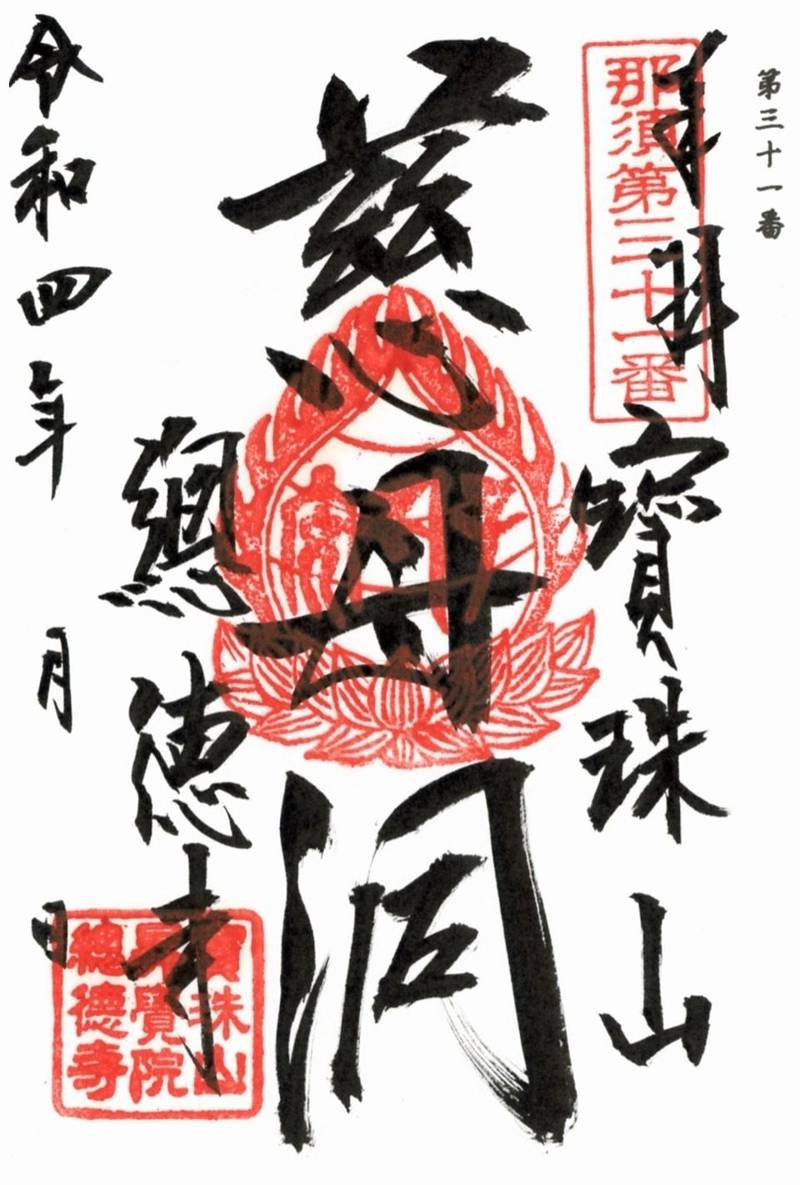 第三十一番
奉拝
那須第三十一番
寶珠山
慈母洞
總徳寺
令和四年
月
日
寶珠山
昇覺院
總德寺